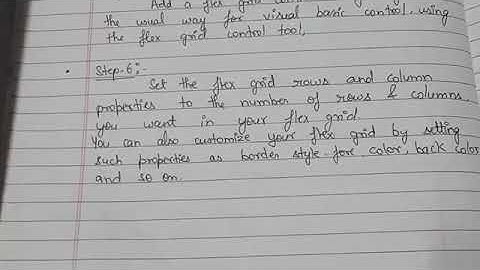 Add a flex grid
the usual way for visual basic control, using
the flex grid control tool,
• Step-6:-
Set the flex grid rows and column
properties to the number of rows & columns,
you want in your flex grid.
You can also customize your flex grid by setting
such properties as border style fore color, back color
and so on.